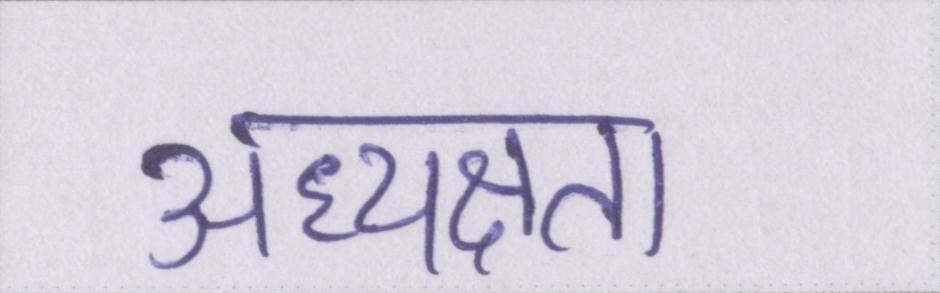 अध्यक्षता